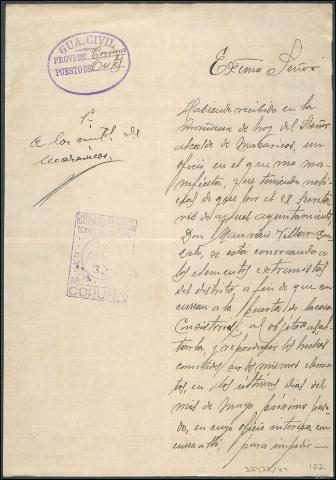 GUA. CIVIL
PROVA DE Coruña
PUESTO DE
Excmo Señor
Habiendo recibido en la
mañana de hoy del Señor
alcalde de Mazaricos, un
oficio en el que me ma-
nifiesta, que teniendo noti-
cias de que por el ex Secreta-
rio de aquel ayuntamiento
Don Mauricio Villar
se está convocando a
los elementos extremistas
del distrito, a fin de que con-
curran a la puerta de la casa
Consistorial, al objeto de asal-
tarla, y reproducir los hechos
cometidos por los mismos elemen-
tos, en los últimos dias del
mes de Mayo próximo pasa-
do, en cuyo oficio interesa con-
curra allí, para impedir
A los
de
Mazaricos.
32
CORUÑA
102